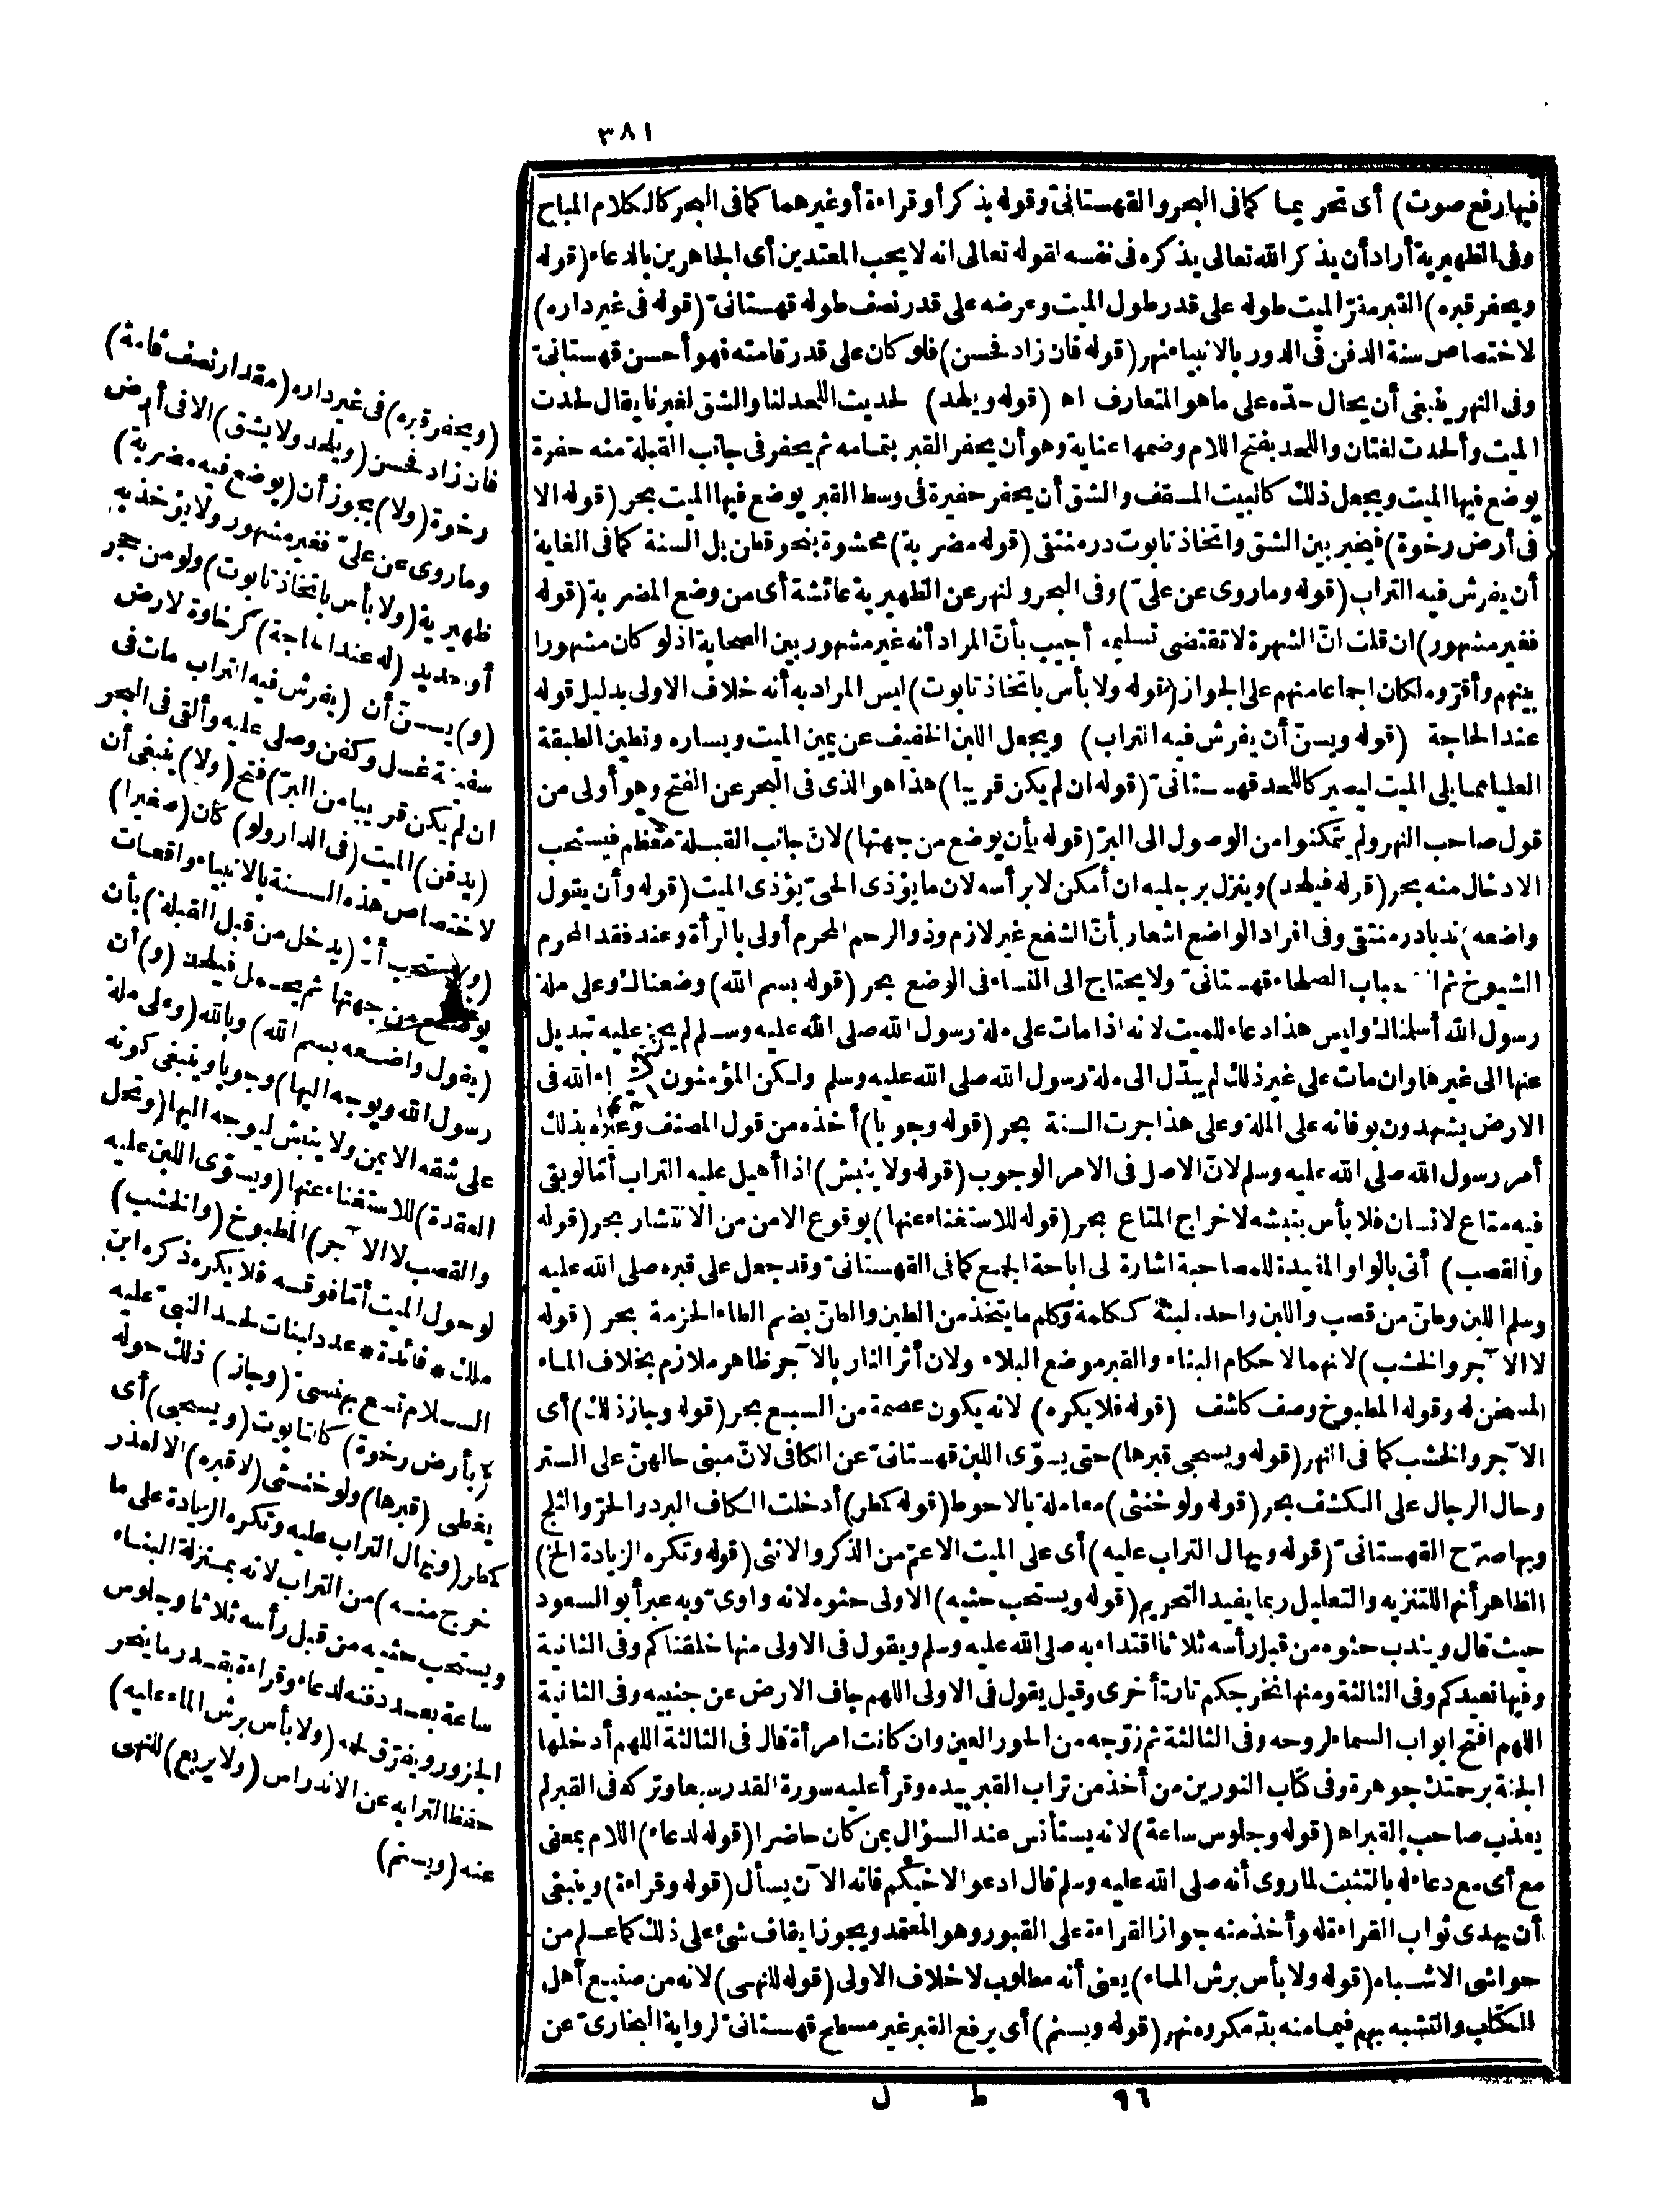 ٣٨١
فيها رفع صوت) أى تحريما كما فى البحر والقهستانىّ وقوله بذكر أو قراءة أو غيرهما كما فى البحر كالكلام المباح
وفى الظهيرية أراد أن يذكر الله تعالى يذكره فى نفسه لقوله تعالى انه لا يحب المعتدين أى الجاهرين بالدعاء (قوله
ويحفر قبره) القبر مقرّ الميت طوله على قدر طول الميت وعرضه على قدر نصف طوله قهستانىّ (قوله فى غير داره)
لاختصاص سنة الدفن فى الدور بالانبياء نهر (قوله فان زاد فحسن) فلو كان على قدر قامته فهو أحسن قهستانىّ
وفى النهر ينبغى أن يحال حدّه على ما هو المتعارف اه (قوله ويلحد) لحديث اللحد لنا والشق لغيرنا يقال لحدت
الميت وألحدت لغتان واللحد بفتح اللام وضمها عناية وهو أن يحفر القبر بتمامه ثم يحفر فى جانب القبلة منه حفرة
يوضع فيها الميت ويجعل ذلك كالبيت المسقف والشق أن يحفر حفيرة فى وسط القبر يوضع فيها الميت بحر (قوله الا
فى أرض رخوة) فيخير بين الشق واتخاذ تابوت در منتقى (قوله مضربة) محشوة بنحو قطن بل السنة كما فى الغاية
أن يفرش فيه التراب (قوله وما روى عن علىّ) وفى البحر ولنهر عن الظهيرية عائشة أى من وضع المضربة (قوله
فغير مشهور) ان قلت انّ الشهرة لا تقتضى تسليمه أجيب بأنّ المراد أنه غير مشهور بين الصحابة اذ لو كان مشهورا
بينهم وأقرّوه لكان اجماعا منهم على الجواز (قوله ولا بأس باتخاذ تابوت) ليس المراد به أنه خلاف الاولى بدليل قوله
عند الحاجة (قوله ويسنّ أن يفرش فيه التراب) ويجعل اللبن الخفيف عن يمين الميت ويساره وتطين الطبقة
العليا مما يلى الميت ليصير كاللحد قهستانىّ (قوله ان لم يكن قريبا) هذا هو الذى فى البحر عن الفتح وهو أولى من
قول صاحب النهر ولم يتمكنوا من الوصول الى البرّ (قوله بأن يوضع من جهتها) لانّ جانب القبلة معظم فيستحب
الادخال منه بحر (قوله فيلحد) وينزل برجليه ان أمكن لا برأسه لان ما يؤذى الحىّ يؤذى الميت (قوله وأن يقول
واضعه) ندبا در منتقى وفى افراد الواضع اشعار بأنّ الشفع غير لازم وذو الرحم المحرم أولى بالمرأة وعند فقد المحرم
الشيوخ ثم الشباب الصلحاء قهستانىّ ولا يحتاج الى النساء فى الوضع بحر (قوله بسم الله) وضعناك وعلى ملة
رسول الله أسلمناك وليس هذا دعاء للميت لانه اذا مات على ملة رسول الله صلى الله عليه وسلم لم يجز عليه تبديل
عنها الى غيرها وان مات على غير ذلك لم يبدّل الى ملة رسول الله صلى الله عليه وسلم ولكن المؤمنون شهداء الله فى
الارض يشهدون بوفاته على الملة وعلى هذا جرت السنة بحر (قوله وجوبا) أخذه من قول المصنف وغيره بذلك
أمر رسول الله صلى الله عليه وسلم لانّ الاصل فى الامر الوجوب (قوله ولا ينبش) اذا أهيل عليه التراب أمّا لو بقى
فيه متاع لانسان فلا بأس بنبشه لاخراج المتاع بحر (قوله للاستغناء عنها) بوقوع الامن من الانتشار بحر (قوله
والقصب) أتى بالواو المفيدة للمصاحبة اشارة لى اباحة الجمع كما فى القهستانىّ وقد جعل على قبره صلى الله عليه
وسلم اللبن وطنّ من قصب واللبن واحده لبنة ككلمة وكلم ما يتخذ من الطين والطنّ بضم الطاء الحزمة بحر (قوله
لا الآجر والخشب) لانهما لاحكام البناء والقبر موضع البلاء ولان أثر النار بالآجر ظاهر ملازم بخلاف الماء
المسخن له وقوله المطبوخ وصف كاشف (قوله فلا يكره) لانه يكون عصمة من السبع بحر (قوله وجاز ذلك) أى
الآجر والخشب كما فى النهر (قوله ويسجى قبرها) حتى يسوّى اللبن قهستانىّ عن الكافى لانّ مبنى حالهنّ على الستر
وحال الرجال على الكشف بحر (قوله ولو خنثى) معاملة بالاحوط (قوله كمطر) أدخلت الكاف البرد والحرّ والثلج
وبها صرّح القهستانىّ (قوله ويهال التراب عليه) أى على الميت الاعمّ من الذكر والانثى (قوله وتكره الزيادة الخ)
الظاهر أنها للتنزيه والتعليل ربما يفيد التحريم (قوله ويستحب حثيه) الاولى حثوه لانه واوىّ وبه عبر أبو السعود
حيث قال ويندب حثوه من قبل رأسه ثلاثا اقتداء به صلى الله عليه وسلم ويقول فى الاولى منها خلقناكم وفى الثانية
وفيها نعيدكم وفى الثالثة ومنها نخرجكم تارة أخرى وقيل يقول فى الاولى اللهم جاف الارض عن جنبيه وفى الثانية
اللهم افتح ابواب السماء لروحه وفى الثالثة ثم زوّجه من الحور العين وان كانت امرأة قال فى الثالثة اللهم أدخلها
الجنة برحمتك جوهرة وفى كتاب النورين من أخذ من تراب القبر بيده وقرأ عليه سورة القدر سبعا وتركه فى القبر لم
يعذب صاحب القبر اه (قوله وجلوس ساعة) لانه يستأنس عند السؤال بمن كان حاضرا (قوله لدعاء) اللام بمعنى
مع أى مع دعاء له بالتثبت لما روى أنه صلى الله عليه وسلم قال ادعوا لاخيكم فانه الآن يسأل (قوله وقراءة) وينبغى
أن يهدى ثواب القراءة له وأخذ منه جواز القراءة على القبور وهو المعتمد ويجوز ايقاف شئ على ذلك كما علم من
حواشى الاشباه (قوله ولا بأس برش الماء) يعنى أنه مطلوب لا خلاف الاولى (قوله للنهى) لانه من صنيع أهل
الكتاب والتشبه بهم فيما منه بدّ مكروه نهر (قوله ويسنم) أى يرفع القبر غير مسطح قهستانىّ لرواية البخارىّ عن
(ويحفر قبره) فى غير داره (مقدار نصف قامة)
فان زاد فحسن (ويلحد ولا يشق) الا فى أرض
رخوة (ولا) يجوز أن (يوضع فيه مضربة)
وما روى عن علىّ فغير مشهور ولا يؤخذ به
ظهيرية (ولا بأس باتخاذ تابوت) ولو من حجر
أو حديد (له عند الحاجة) كرخاوة لارض
(و) يسنّ أن (يفرش فيه التراب مات فى
سفينة غسل وكفن وصلى عليه وألقى فى البحر
ان لم يكن قريبا من البرّ) فتح (ولا) ينبغى أن
(يدفن) الميت (فى الدار ولو) كان (صغيرا)
لاختصاص هذه السنة بالانبياء واقعات
(و) يستحب أن (يدخل من قبل القبلة) بأن
يوضع من جهتها ثم يحمل فيلحد (و) أن
(يقول واضعه بسم الله) وبالله (وعلى ملة
رسول الله ويوجه اليها) وجوبا وينبغى كونه
على شقه الايمن ولا ينبش ليوجه اليها (وتحل
العقدة) للاستغناء عنها (ويسوّى اللبن عليه
والقصب لا الآجر) المطبوخ (والخشب)
لو حول الميت أمّا فوقه فلا يكره ذكره ابن
ملك * فائدة * عدد لبنات لحد النبىّ عليه
السلام تسع بهنسىّ (وجاز) ذلك حوله
(بأرض رخوة) كالتابوت (ويسجى) أى
يغطى (قبرها) ولو خنثى (لا قبره) الا لعذر
كمطر (ويهال التراب عليه وتكره الزيادة على ما
خرج منه) من التراب لانه بمنزلة البناء
ويستحب حثيه من قبل رأسه ثلاثا وجلوس
ساعة بعد دفنه لدعاء وقراءة بقدر ما ينحر
الجزور ويفرّق لحمه (ولا بأس برش الماء عليه)
حفظا لترابه عن الاندراس (ولا يربع) للنهى
عنه (ويسنم)
٩٦ ط ل